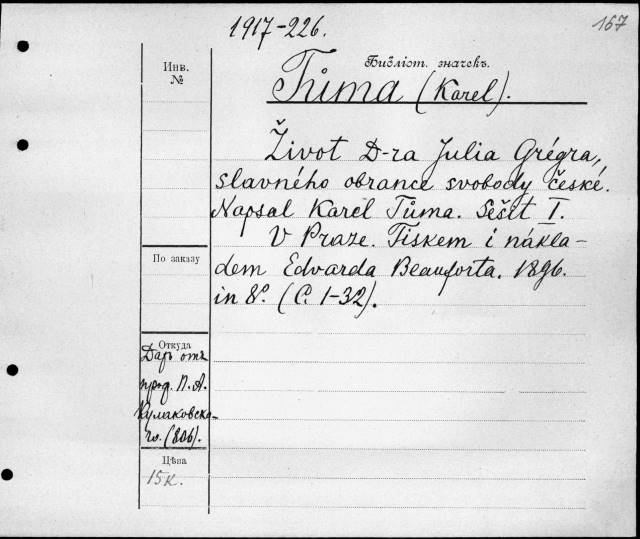 1917-226.
167
Инв.
№
Библіот. значекъ.
Tůma (Karel).
Život D-ra Julia Grégra,
slavného obrance svobody české.
Napsal Karel Tůma. Sešit I.
V Praze. Tiskem i nákla-
dem Edvarda Beauforta. 1896.
in 8º. (C. 1-32).
По заказу
Откуда
Даръ отъ
проф. П. А.
Кулаковска-
го. (806).
Цѣна
15 к.